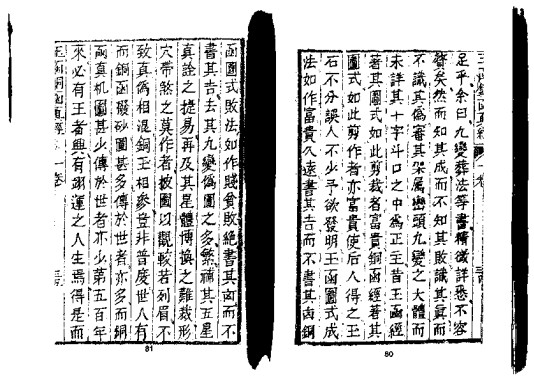 玉函銅函真經 一卷
足乎余曰九變葬法等書精微詳悉不容
贅矣然而知其成而不知其敗識其真而
不識其偽審其架屬巒頭九變之大體而
未詳其十字斗口之中為正主昔王函經
著其圖式如此剪裁者富貴銅函經著其
圖式如此剪作者亦富貴使后人得之王
石不分誤人不少予欲發明王函圖式成
法如作富貴久遠書其吉而不書其凶銅
80
函圖式敗法如作賤貧敗絕書其凶而不
書其吉去其九變偽圖之多繁補其五星
真詮之提易再及其星體博換之難裁形
穴帶煞之莫作者披圖以觀較若列眉不
致真偽相混銅王相參豈非普度世人有
而銅函撥砂圖甚多傳於世者亦多而銅
函真机圖甚少傳於世者亦少第五百年
來必有王者興有翊運之人生焉得是而
玉函銅函真經 一卷
81